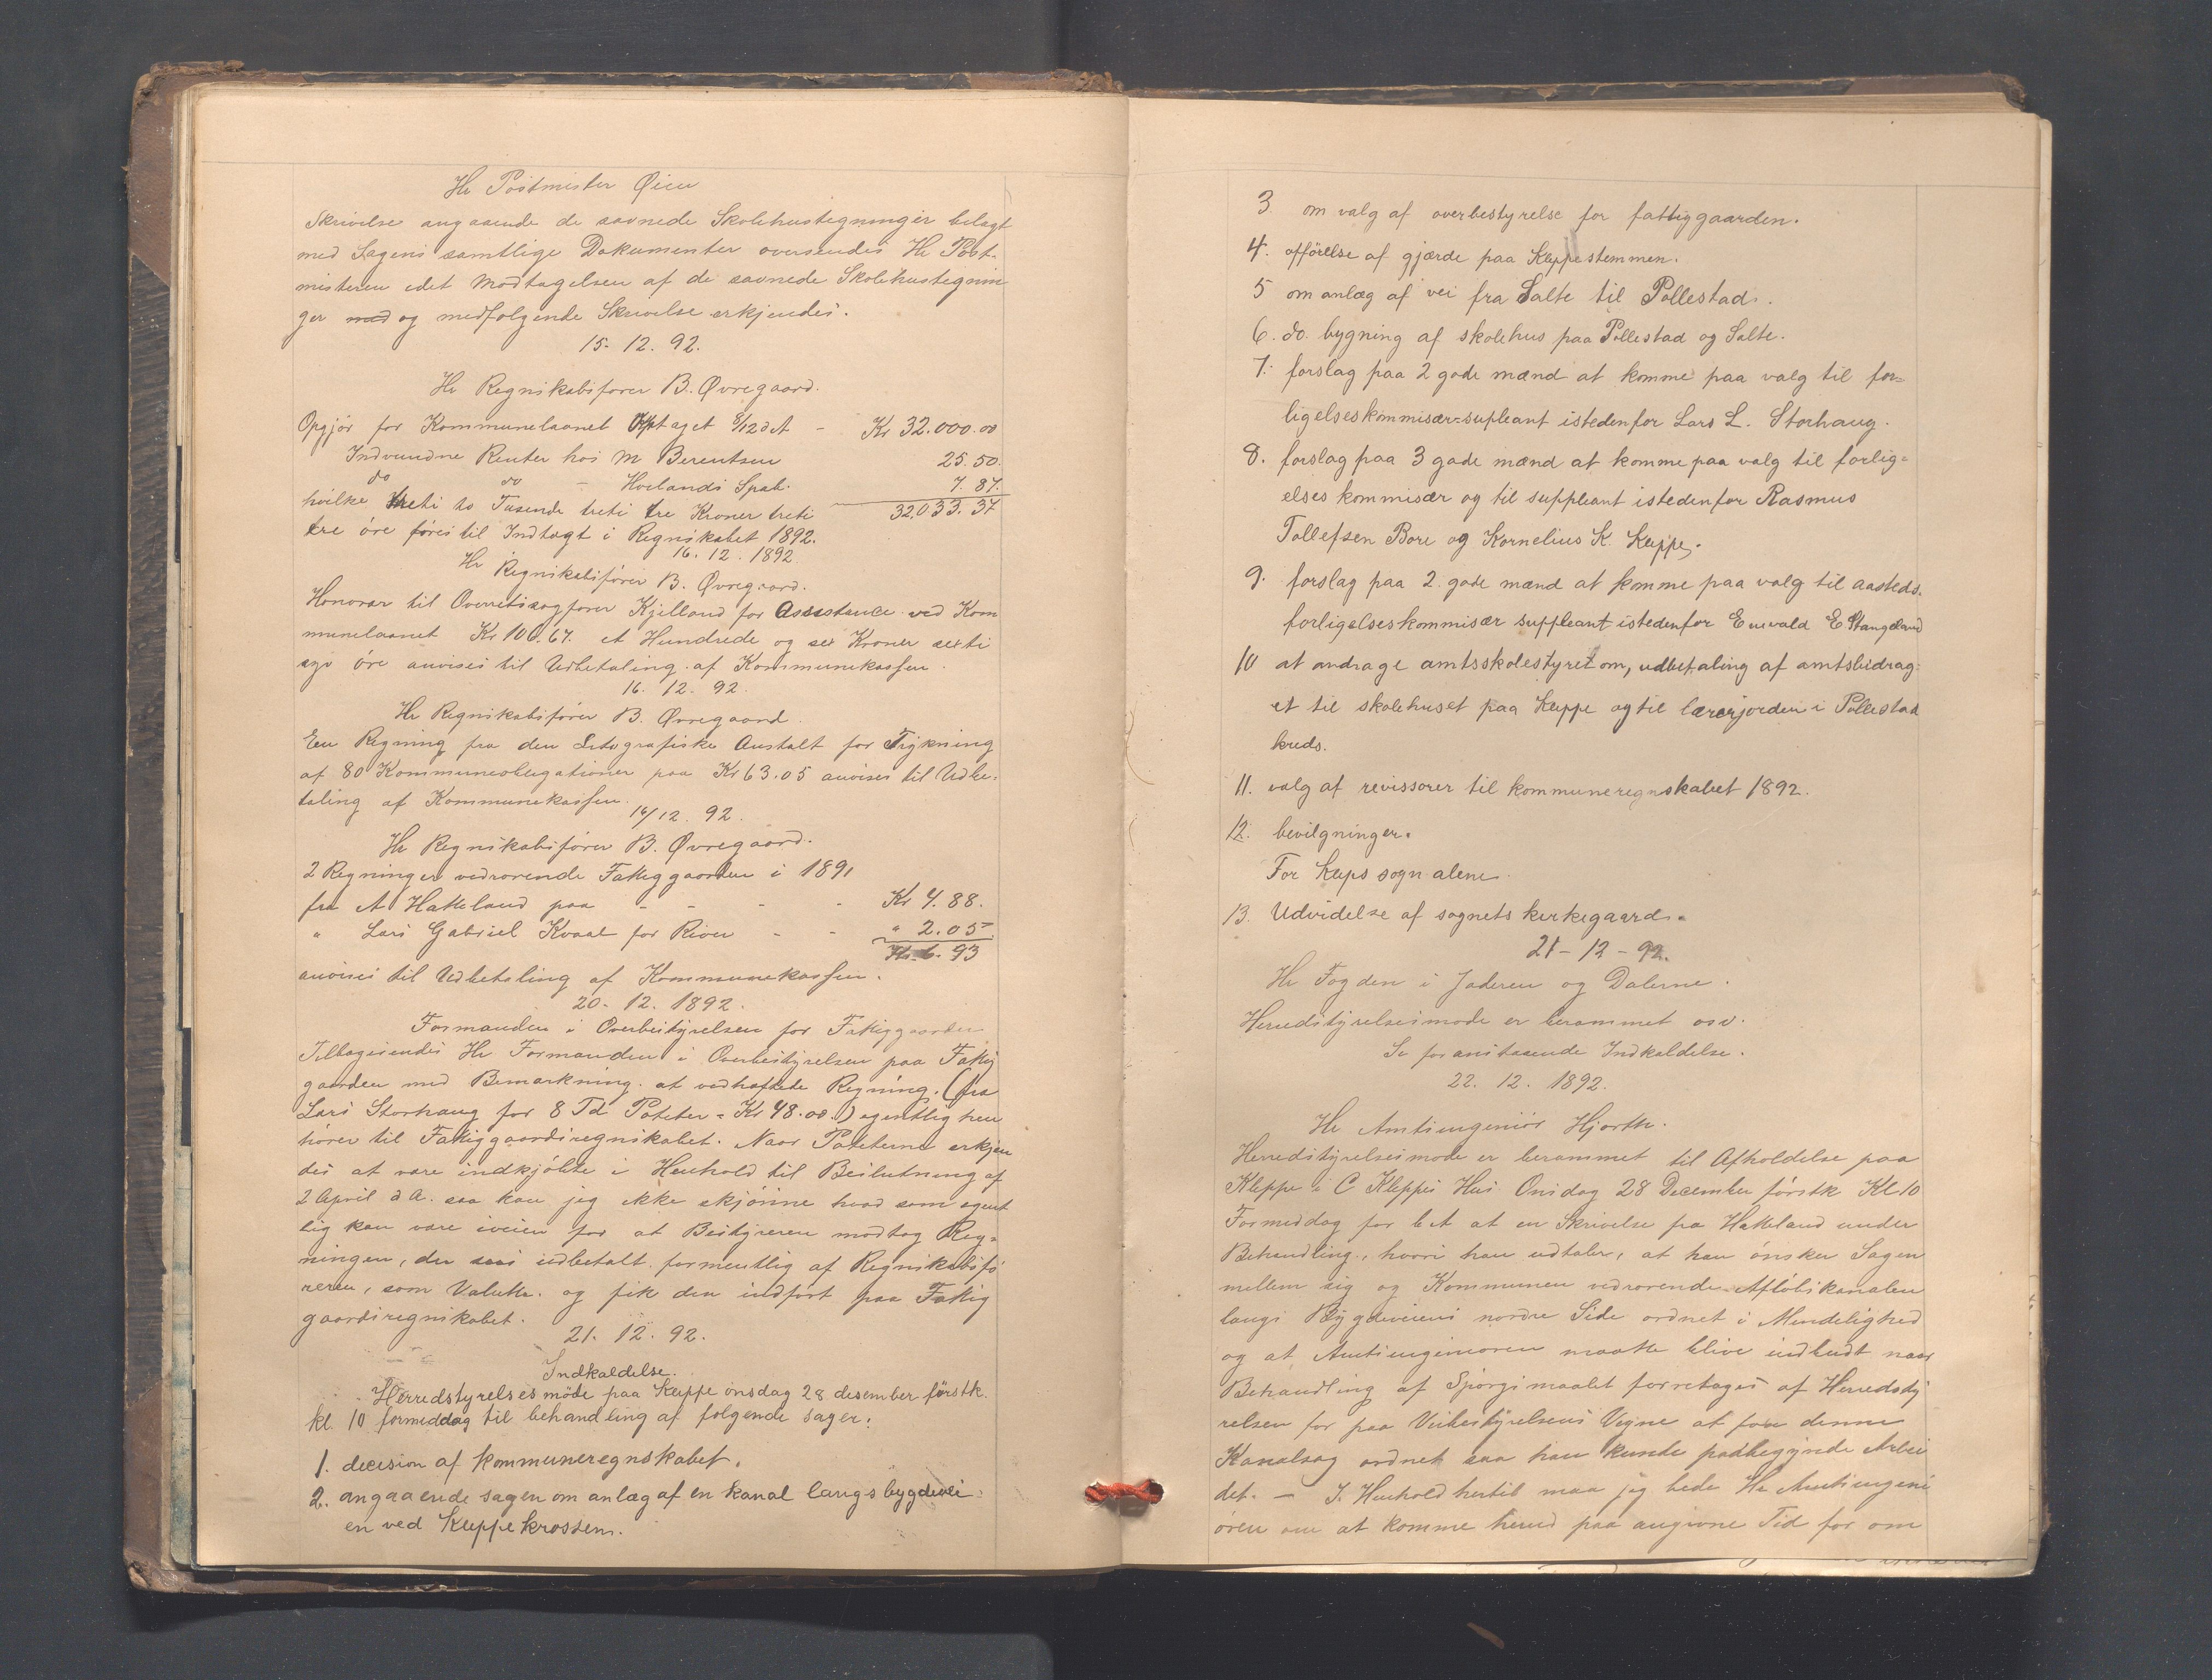 Hr Postmister Øien
Skrivelse angaaende de savnede Skolehustegninger belagt
med Sagens samtlige Dokumenter oversendes Hr Post-
misteren idet Modtagelsen af de savnede Skolehustegnin
ger med og medfølgende Skrivelse erkjendes.
15- 12. 92.
Hr Regnskabsfører B. Øvregaard.
Opgjør for Kommunelaanet Optaget 8/12 dA - Kr 32.000.00
Indvundne Renter hos M Berentsen 25.50.
do do - Hoilands Spab. 7.87.
hvilke treti to Tusende treti tre Kroner treti 32,033.37
tre øre føres til Indtægt i Regnskabet 1892.
16. 12. 1892.
Hr Regnskabsfører B. Øvregaard.
Honorar til Overretssagfører Kjelland for Assistance ved Kom
munelaanet Kr 106.67. et Hundrede og sex Kroner sexti
syv øre anvises til Udbetaling af Kommunekassen.
16. 12. 92.
Hr Regnskabsfører B. Øvregaard.
Een Regning fra den Litografiske Anstalt for Trykning
af 80 Kommuneobligationer paa Kr 63.05 anvises til Udbe-
taling af Kommunekassen.
16/12. 92.
Hr Regnskabsfører B. Øvregaard.
2 Regninger vedrørende Fattiggaarden i 1891
fra A Hatteland paa - - - - Kr 4.88.
" Lars Gabriel Kvaal for River - - " 2.05
Kr. 6.93
anvises til Udbetaling af Kommunekassen.
20- 12. 1892.
Formanden i Overbestyrelsen for Fattiggaarden
Tilbagesendes Hr Formanden i Overbestyrelsen paa Fattig
gaarden med Bemærkning at vedhæftede Regning. (fra
Lars Storhaug for 8 Td Poteter = Kr 48.00) egentlig hen
hører til Fattiggaardsregnskabet. Naar Poteterne erkjen
des at være indkjøbte i Henhold til Beslutning af
2 April d A. saa kan jeg ikke skjønne hvad som egent
lig kan være iveien for at Bestyreren modtog Reg-
ningen, der sees udbetalt formentlig af Regnskabsfø
reren, som Valuta og fik den indført paa Fattig
gaardsregnskabet.
21. 12. 92.
Indkaldelse.
Herredstyrelsesmøde paa Kleppe onsdag 28 desember førstk.
kl. 10 formiddag til behandling af følgende sager:
1. decision af kommuneregnskabet.
2. angaaende sagen om anlæg af en kanal langs bygdevei-
en ved Kleppekrossen.
3. om valg af overbestyrelse for fattiggaarden.
4. opførelse af gjærde paa Kleppestemmen.
5 om anlæg af vei fra Salte til Pollestad.
6. do. bygning af skolehus paa Pollestad og Salte.
7. forslag paa 2 gode mænd at komme paa valg til for-
ligelseskommisær=supleant istedenfor Lars L. Storhaug.
8. forslag paa 3 gode mænd at komme paa valg til forlig-
elses kommisær og til suppleant istedenfor Rasmus
Tollefsen Bore og Kornelius K. Kleppe.
9. forslag paa 2. gode mænd at komme paa valg til aasteds-
forligelseskommisær suppleant istedenfor Enevald E. Stangeland
10 at andrage amtsskolestyret om, udbetaling af amtsbidrag-
et til skolehuset paa Kleppe og til lærerjorden i Pollestad
kreds.
11. valg af revissorer til kommuneregnskabet 1892.
12. bevilgninger.
For Kleps sogn alene.
13. Udvidelse af sognets kirkegaard.
21-12-92.
Hr Fogden i Jæderen og Dalerne.
Herredstyrelsesmøde er berammet osv.
Se foranstaaende Indkaldelse.
22. 12. 1892.
Hr Amtsingeniør Hjorth.
Herredstyrelsesmøde er berammet til Afholdelse paa
Kleppe i C Kleppes Hus Onsdag 28 December førstk Kl. 10
Formiddag for bl A at en Skrivelse fra Hatteland under
Behandling, hvori han udtaler, at han ønsker Sagen
mellem sig og Kommunen vedrørende Afløbskanalen
langs Bygdeveiens nordre Side ordnet i Mindelighed
og at Amtsingeniøren maatte blive indbudt naar
Behandling af Spørgsmaalet foretages af Herredsty
relsen for paa Veibestyrelsens Vegne at faa denne
Kanalsag ordnet saa han kunde paabegynde Arbei
det. - I Henhold hertil maa jeg bede Hr Amtsingeni
øren om at komme herud paa angivne Tid for om